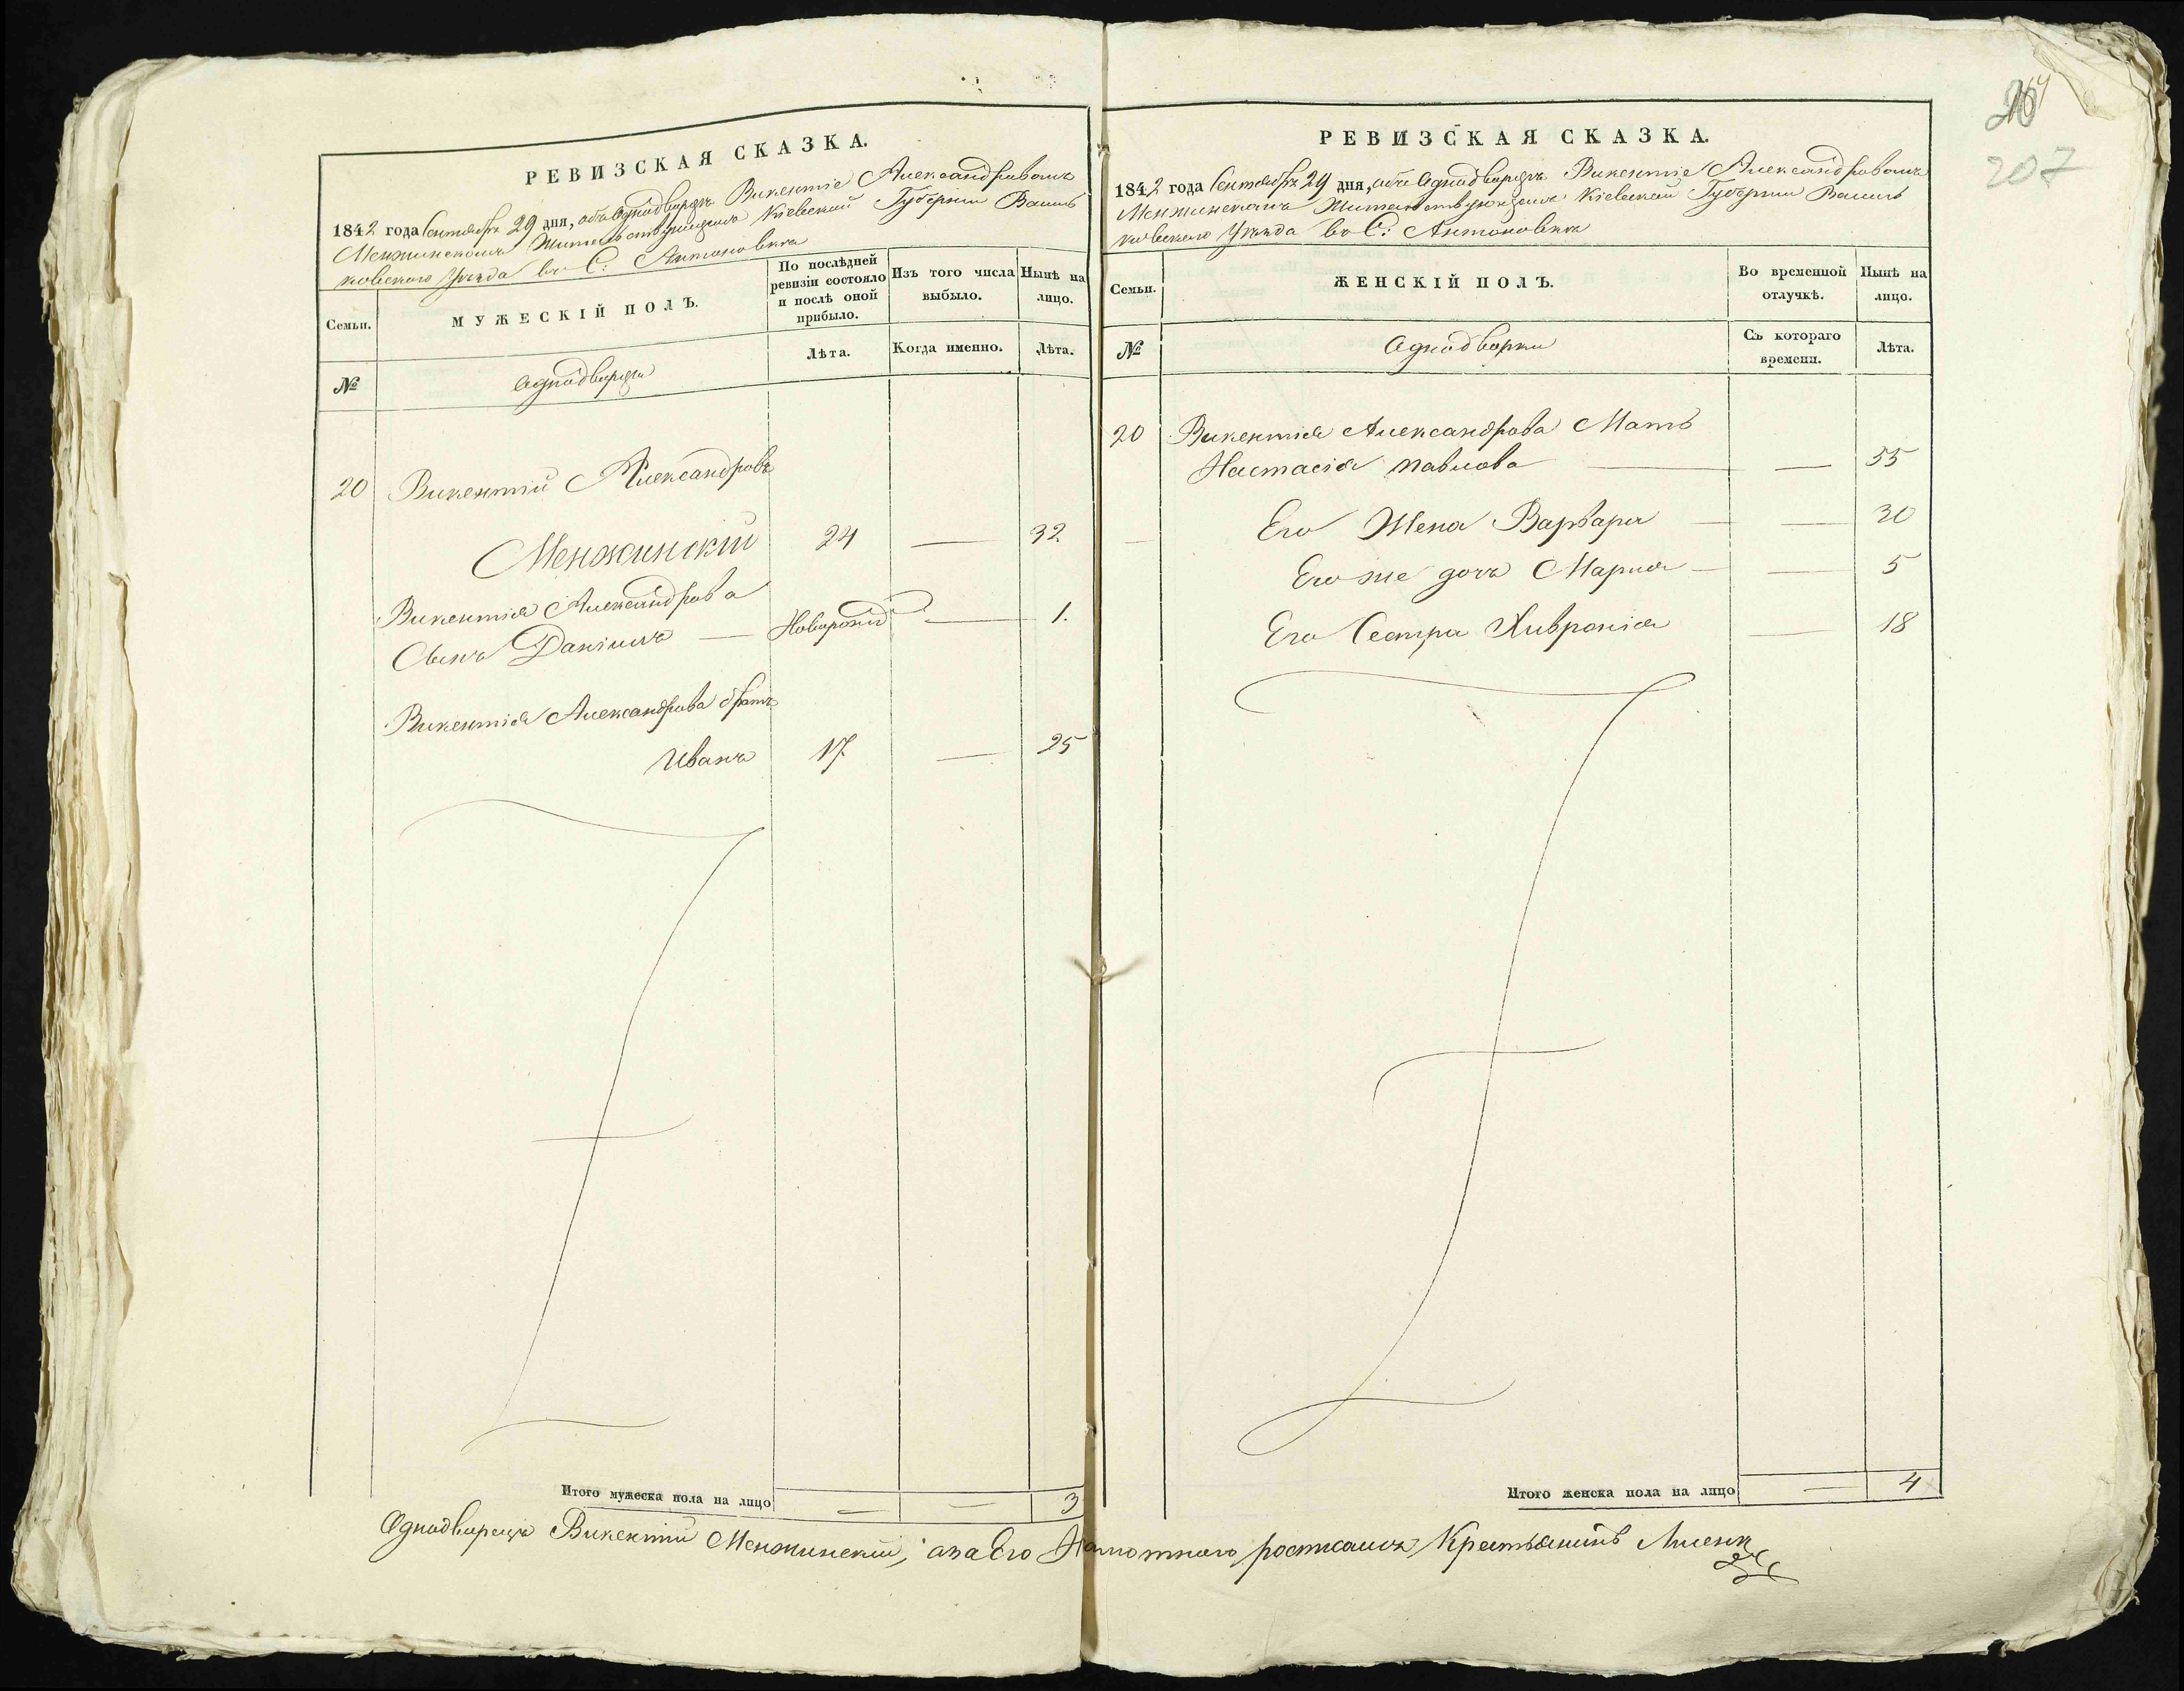 РЕВИЗСКАЯ СКАЗКА.
1842 года Сентября 29 дня, объ Однодворцѣ Викентіе Александровомъ
Менжинскомъ Жительствующемъ Кіевской Губерніи Василь
ковского Уѣзда въ С: Антоновкѣ
Семьи.
МУЖЕСКІЙ ПОЛЪ.
По послѣдней ревизіи состояло и послѣ оной прибыло.
Изъ того числа выбыло.
Нынѣ на лицо.
№
Однодворцы
Лѣта.
Когда именно.
Лѣта.
20 Викентій Александровъ
Менжинскій 24 — 32
Викентія Александрова
Сынъ Даніилъ — Новорожд — 1.
Викентія Александрова братъ
Иванъ 17 — 25
Итого мужеска пола на лицо — — 3
РЕВИЗСКАЯ СКАЗКА.
1842 года Сентября 29 дня, объ Однодворцѣ Викентіе Александровомъ
Менжинскомъ Жительствующемъ Кіевской Губерніи Василь
ковского Уѣзда въ С: Антоновкѣ
Семьи.
ЖЕНСКІЙ ПОЛЪ.
Во временной отлучкѣ.
Нынѣ на лицо.
№
Однодворки
Съ котораго времени.
Лѣта.
20 Викентія Александрова Мать
Настасія Павлова — — 55
Его Жена Варвара — — 30
Его же дочь Марія — — 5
Его Сестра Хивронія — 18
Итого женска пола на лицо — 4
Однодворецъ Викентій Менжинскій, а за Его росписался Крестьянинъ
207